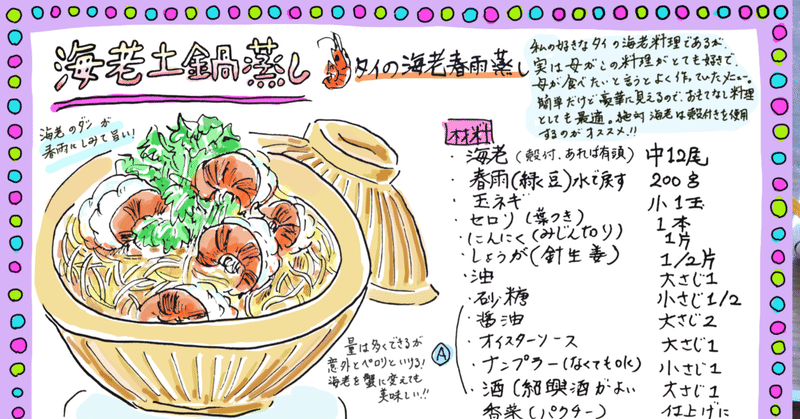 海老土鍋蒸し
タイの海老春雨蒸し
私の好きなタイの海老料理であるが、
実は母がこの料理がとても好きで、
母が食べたいと言うとよく作っていたメニュー。
簡単だけど豪華に見えるので、おもてなし料理
としても最適。絶対海老は殻付きを使用
するのがオススメ!!
海老のダシが
春雨にしみて旨い!
材料
・海老(殻付、あれば有頭) 中12尾
・春雨(緑豆)水で戻す 200g
・玉ネギ 小1玉
・セロリ(葉つき) 1本
・にんにく(みじん切り) 1片
・しょうが(針生姜) 1/2片
・油 大さじ1
・砂糖 小さじ1/2
・醤油 大さじ2
・オイスターソース 大さじ1
・ナンプラー(なくてもOK) 小さじ1
・酒(紹興酒がよい 大さじ1
香菜(パクター) 仕上げに
A
量は多くできるが
意外とペロリといける!
海老を蟹に変えても
美味しい!!